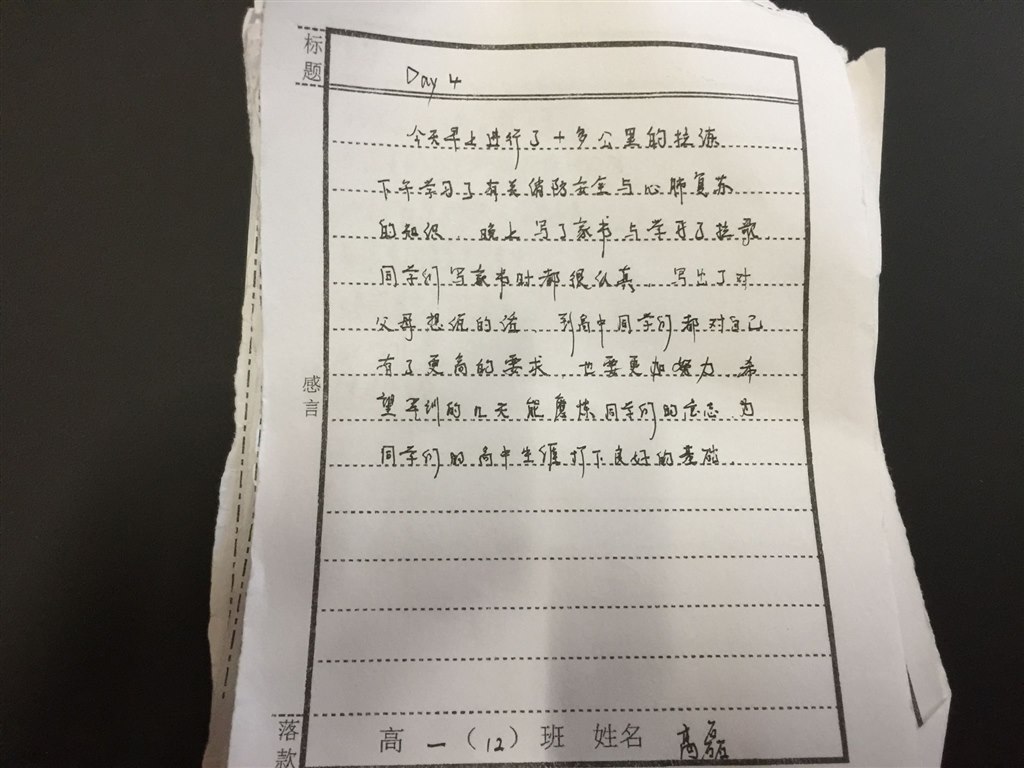 标题
Day 4
今天早上进行了十多公里的拉练
下午学习了有关消防安全与心肺复苏
的知识. 晚上写了家书与学开了拉歌
同学们写家书时都很认真. 写出了对
父母想说的话. 到高中同学们都对自己
有了更高的要求 也要更加努力 希
望军训的几天能磨炼同学们的意志 为
同学们的高中生涯打下良好的基础.
感言
落款
高一(12)班 姓名 高磊